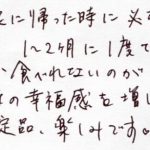 に帰った時に必ず
1〜2ヶ月に1度で
か食べれないのが
の幸福感を増し
定品、楽しみです。